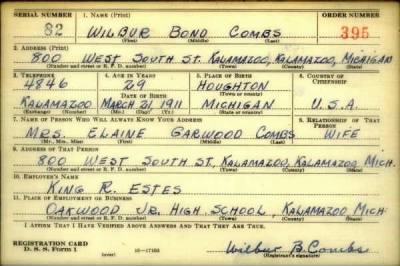 SERIAL NUMBER 1. NAME (Print) ORDER NUMBER
82 WILBUR BOND COMBS 395
(First) (Middle) (Last)
2. ADDRESS (Print)
800 WEST SOUTH ST. KALAMAZOO, KALAMAZOO, MICHIGAN
(Number and street or R. F. D. number) (Town) (County) (State)
3. TELEPHONE 4. AGE IN YEARS 5. PLACE OF BIRTH 6. COUNTRY OF CITIZENSHIP
4846 29 HOUGHTON
DATE OF BIRTH (Town or county)
KALAMAZOO MARCH 21, 1911 MICHIGAN U.S.A.
(Exchange) (Mo.) (Day) (Yr.) (State or country)
7. NAME OF PERSON WHO WILL ALWAYS KNOW YOUR ADDRESS 8. RELATIONSHIP OF THAT PERSON
MRS. ELAINE GARWOOD COMBS WIFE
(Mr., Mrs., Miss) (First) (Middle) (Last)
9. ADDRESS OF THAT PERSON
800 WEST SOUTH ST, KALAMAZOO, KALAMAZOO MICH.
(Number and street or R. F. D. number) (Town) (County) (State)
10. EMPLOYER'S NAME
KING R. ESTES
11. PLACE OF EMPLOYMENT OR BUSINESS
OAKWOOD JR. HIGH SCHOOL, KALAMAZOO MICH
(Number and street or R. F. D. number) (Town) (County) (State)
I AFFIRM THAT I HAVE VERIFIED ABOVE ANSWERS AND THAT THEY ARE TRUE.
REGISTRATION CARD
D. S. S. Form 1 (over) 16-17105 Wilbur B. Combs
(Registrant's signature)